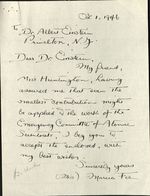 Oct 1, 1946
To Dr. Albert Einstein
Princeton, N.J.
Dear Dr. Einstein,
My friend,
Miss Huntington, having
assured me that even the
smallest contribution might
be applied to the work of the
Emergency Committee of Atomic
Scientists, I beg you to
accept the enclosed, with
my best wishes.
Sincerely yours
(Miss)